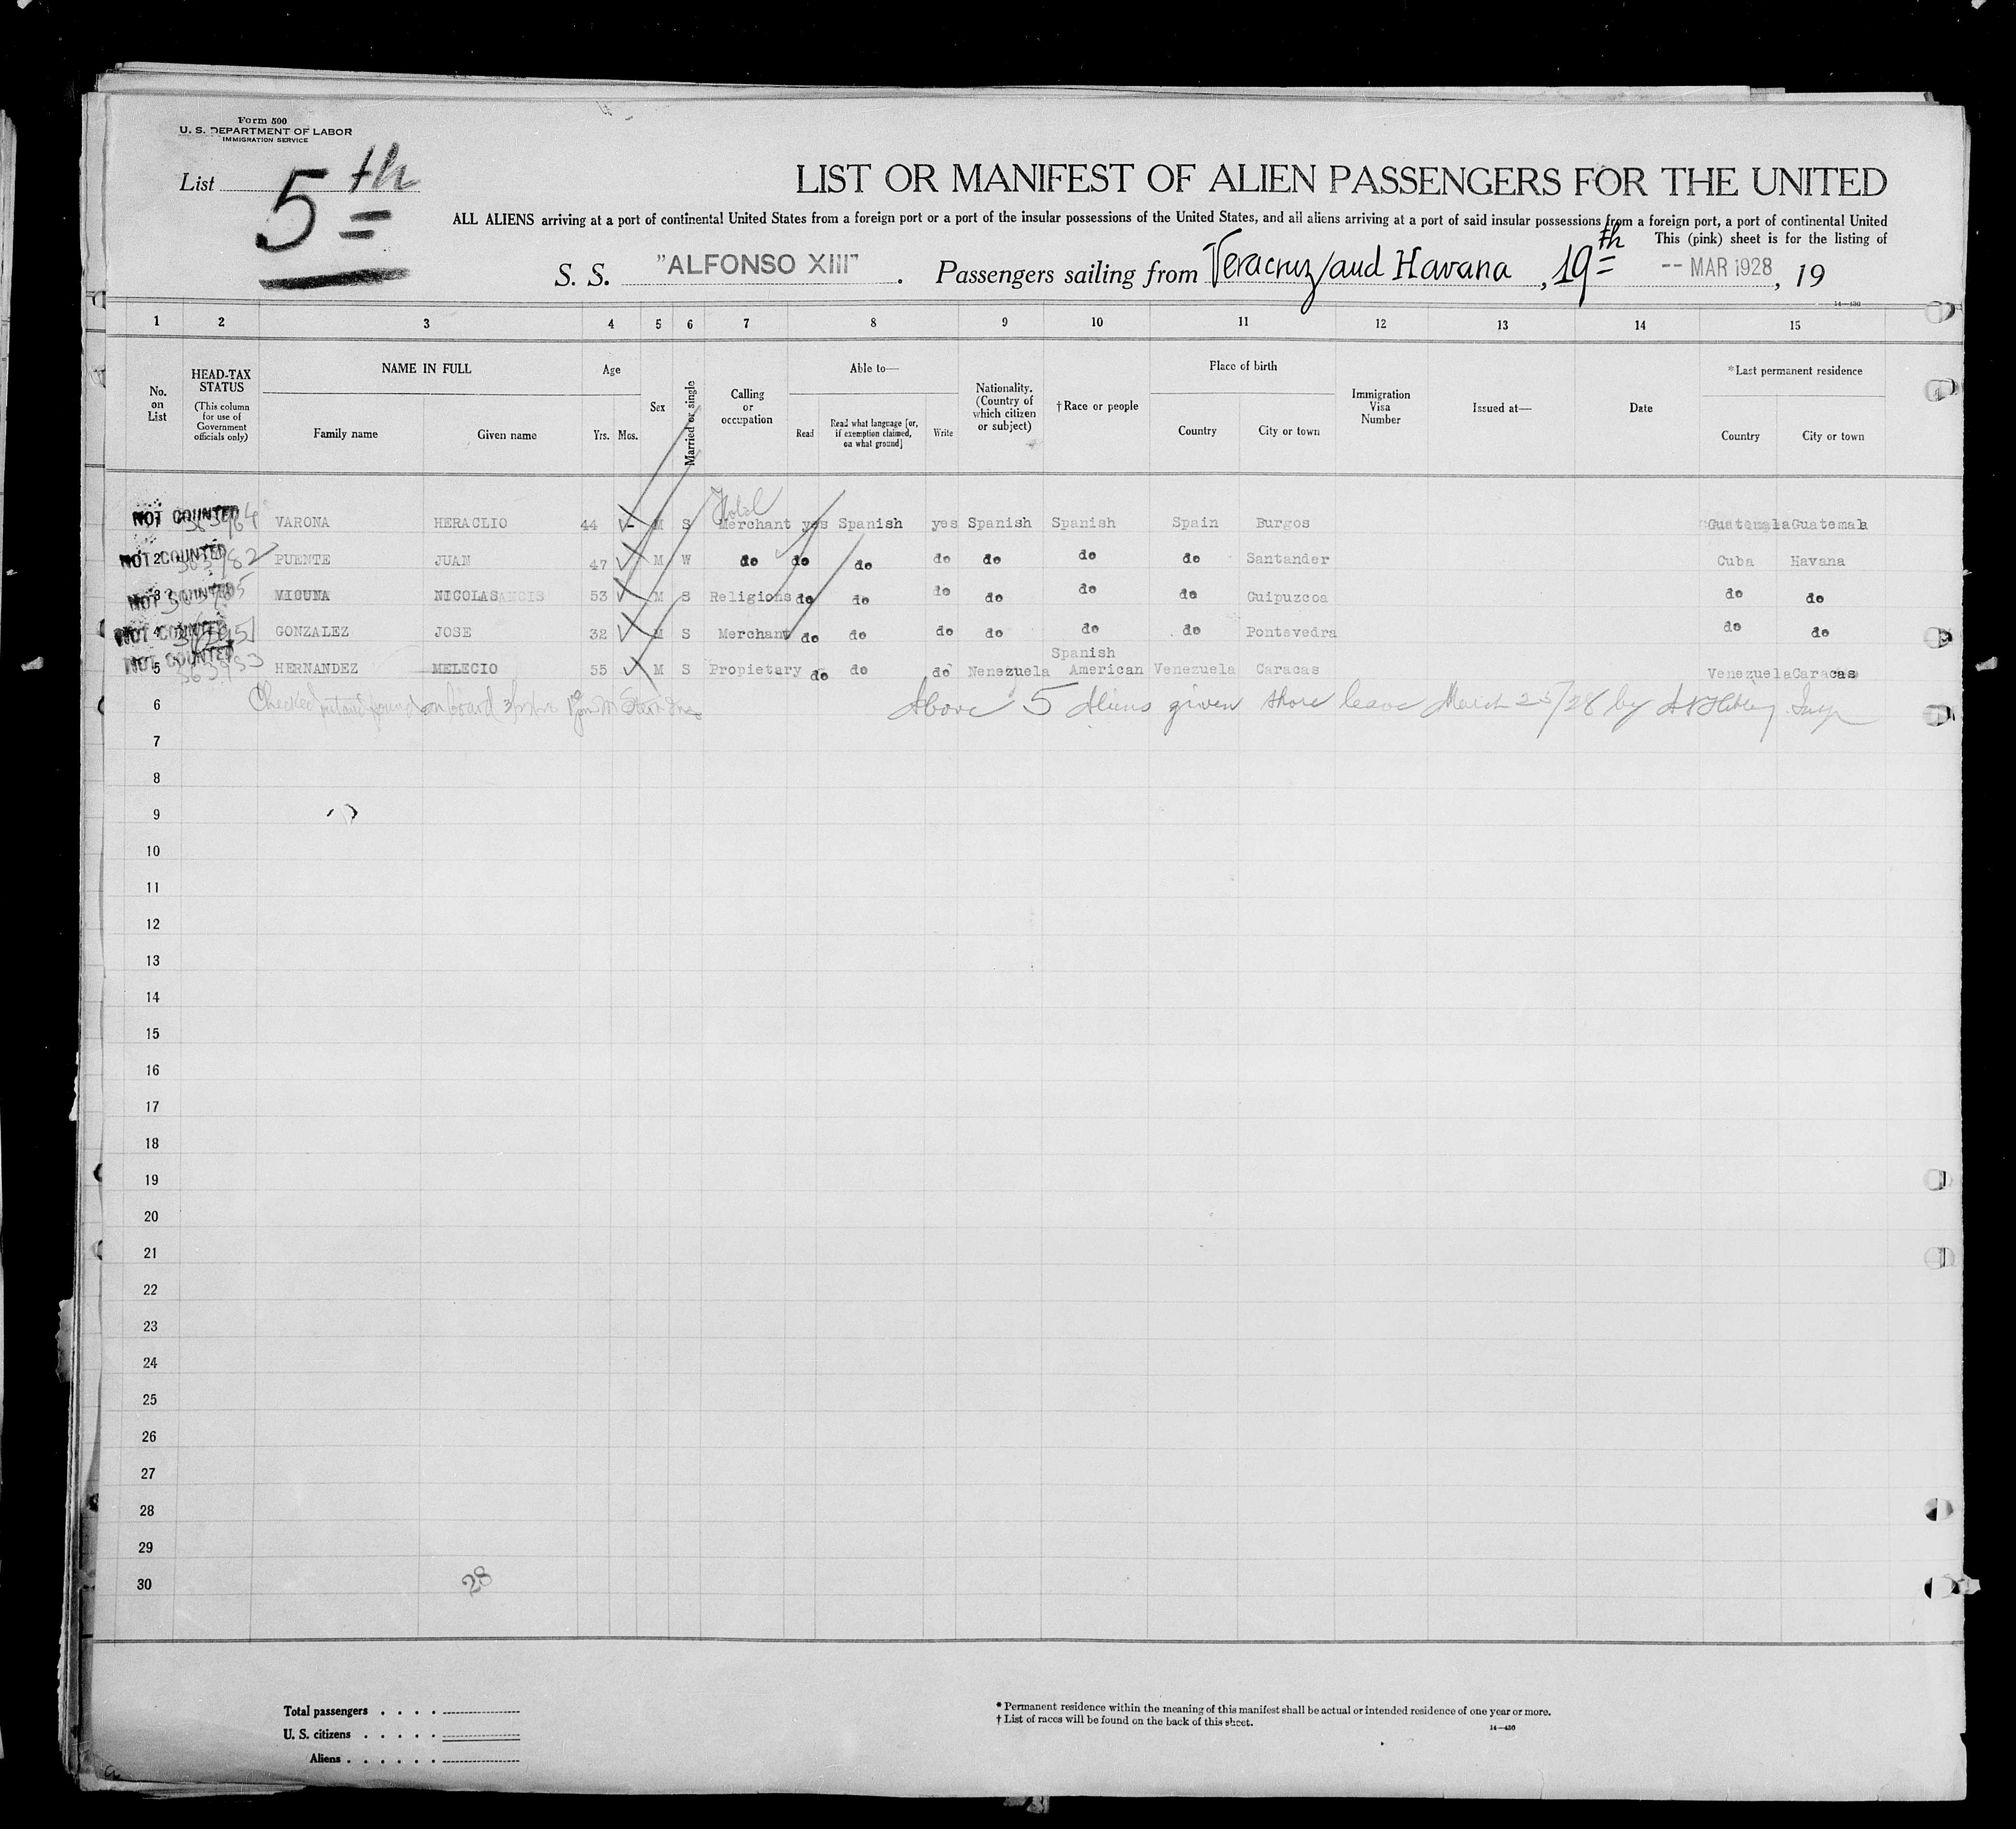 Form 500
U. S. DEPARTMENT OF LABOR
IMMIGRATION SERVICE
List 5th
LIST OR MANIFEST OF ALIEN PASSENGERS FOR THE UNITED
ALL ALIENS arriving at a port of continental United States from a foreign port or a port of the insular possessions of the United States, and all aliens arriving at a port of said insular possessions from a foreign port, a port of continental United
This (pink) sheet is for the listing of
S. S. "ALFONSO XIII" . Passengers sailing from Veracruz/and Havana , 19th -- MAR 1928 , 19
14—430
1 2 3 4 5 6 7 8 9 10 11 12 13 14 15
No. on List
HEAD-TAX STATUS (This column for use of Government officials only)
NAME IN FULL
Family name Given name
Age
Yrs. Mos.
Sex
Married or single
Calling or occupation
Able to—
Read
Read what language [or, if exemption claimed, on what ground]
Write
Nationality. (Country of which citizen or subject)
† Race or people
Place of birth
Country City or town
Immigration Visa Number
Issued at—
Date
* Last permanent residence
Country City or town
Hotel
NOT COUNTED VARONA HERACLIO 44 M S Merchant yes Spanish yes Spanish Spanish Spain Burgos Guatemala Guatemala
NOT COUNTED 2 PUENTE JUAN 47 M W do do do do do do do Santander Cuba Havana
NOT COUNTED 3 VICUNA NICOLAS 53 M S Religions do do do do do do Guipuzcoa do do
NOT COUNTED 4 GONZALEZ JOSE 32 M S Merchant do do do do do do Pontevedra do do
NOT COUNTED 5 HERNANDEZ MELECIO 55 M S Propietary do do do Nenezuela Spanish American Venezuela Caracas Venezuela Caracas
6 Checked found on board
Above 5 Aliens given shore leave March 25/28 by Insp
7
8
9
10
11
12
13
14
15
16
17
18
19
20
21
22
23
24
25
26
27
28
29
30
28
Total passengers . . . .
U. S. citizens . . . . .
Aliens . . . . . .
* Permanent residence within the meaning of this manifest shall be actual or intended residence of one year or more.
† List of races will be found on the back of this sheet.
14—430